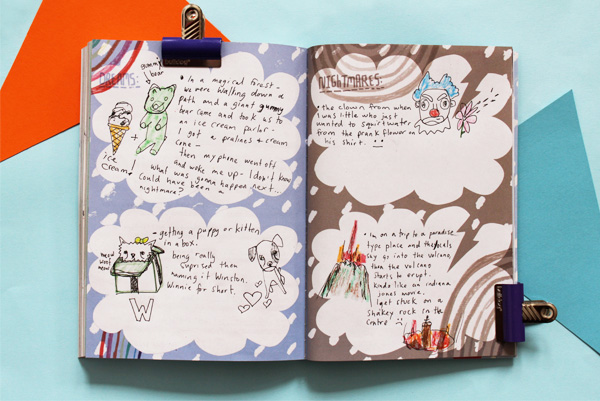 DREAMS:
gummy
bear
• In a magical forest -
we were walking down a
path and a giant gummy
bear came and took us to
an ice cream parlor -
I got a pralines + cream
cone -
then my phone went off
and woke me up - I don't know
what was gonna happen next..
could have been a
nightmare?
+
ice
cream!
- getting a puppy or kitten
in a box.
being really
suprised then
naming it Winston.
Winnie for short.
meow
woof
meow
W
NIGHTMARES:
• the clown from when
I was little who just
wanted to squirt water
from the prank flower on
his shirt.
• Im on a trip to a paradise
type place and the
say go into the volcano
then the volcano
starts to erupt.
kinda like an indiana
jones movie.
I get stuck on a
shakey rock in the
centre